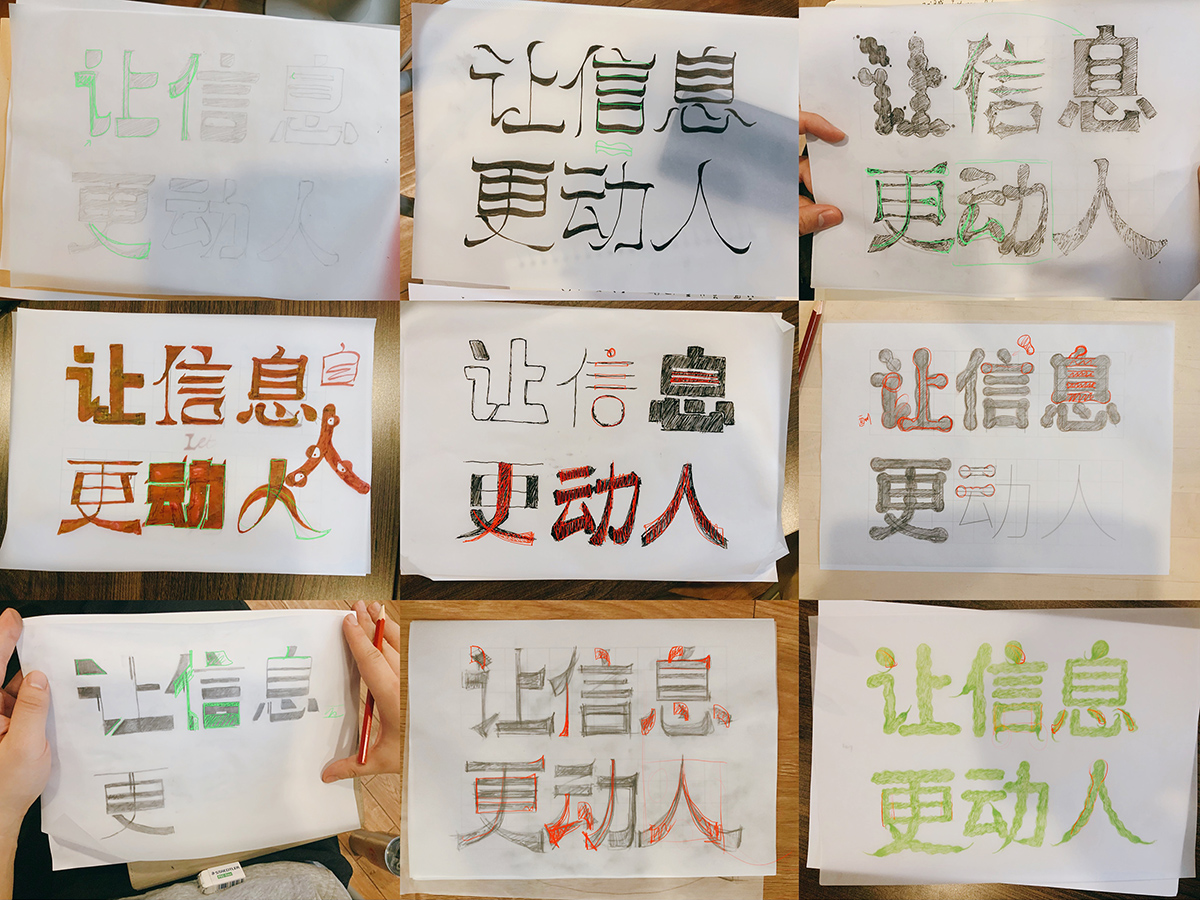 让信息
更动人
让信息
更动人
让信息
更动人
让信息
Let
更动人
人
让信息
更动人
让信息
更动人
让信息
更
STAEDTLER
让信息
更动人
让信息
更动人